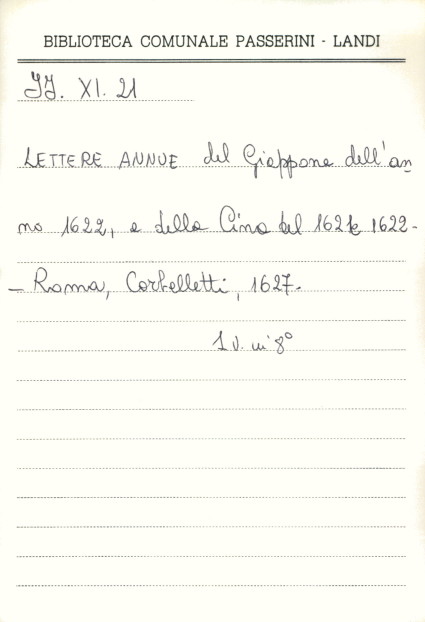 BIBLIOTECA COMUNALE PASSERINI - LANDI
JJ. XI. 21
LETTERE ANNUE del Giappone dell'an
no 1622, e della Cina del 1621 e 1622.
- Roma, Corbelletti, 1627.
1 v. in 8°